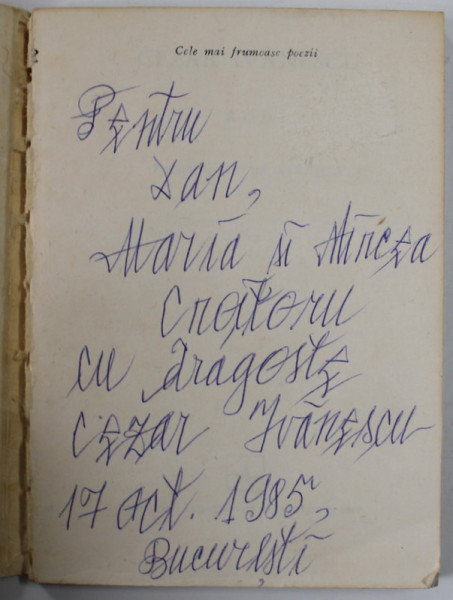 2
Cele mai frumoase poezii
Pentru
Dan,
Maria și Mircea
cu dragoste
Cezar Ivănescu
17 oct. 1985,
București